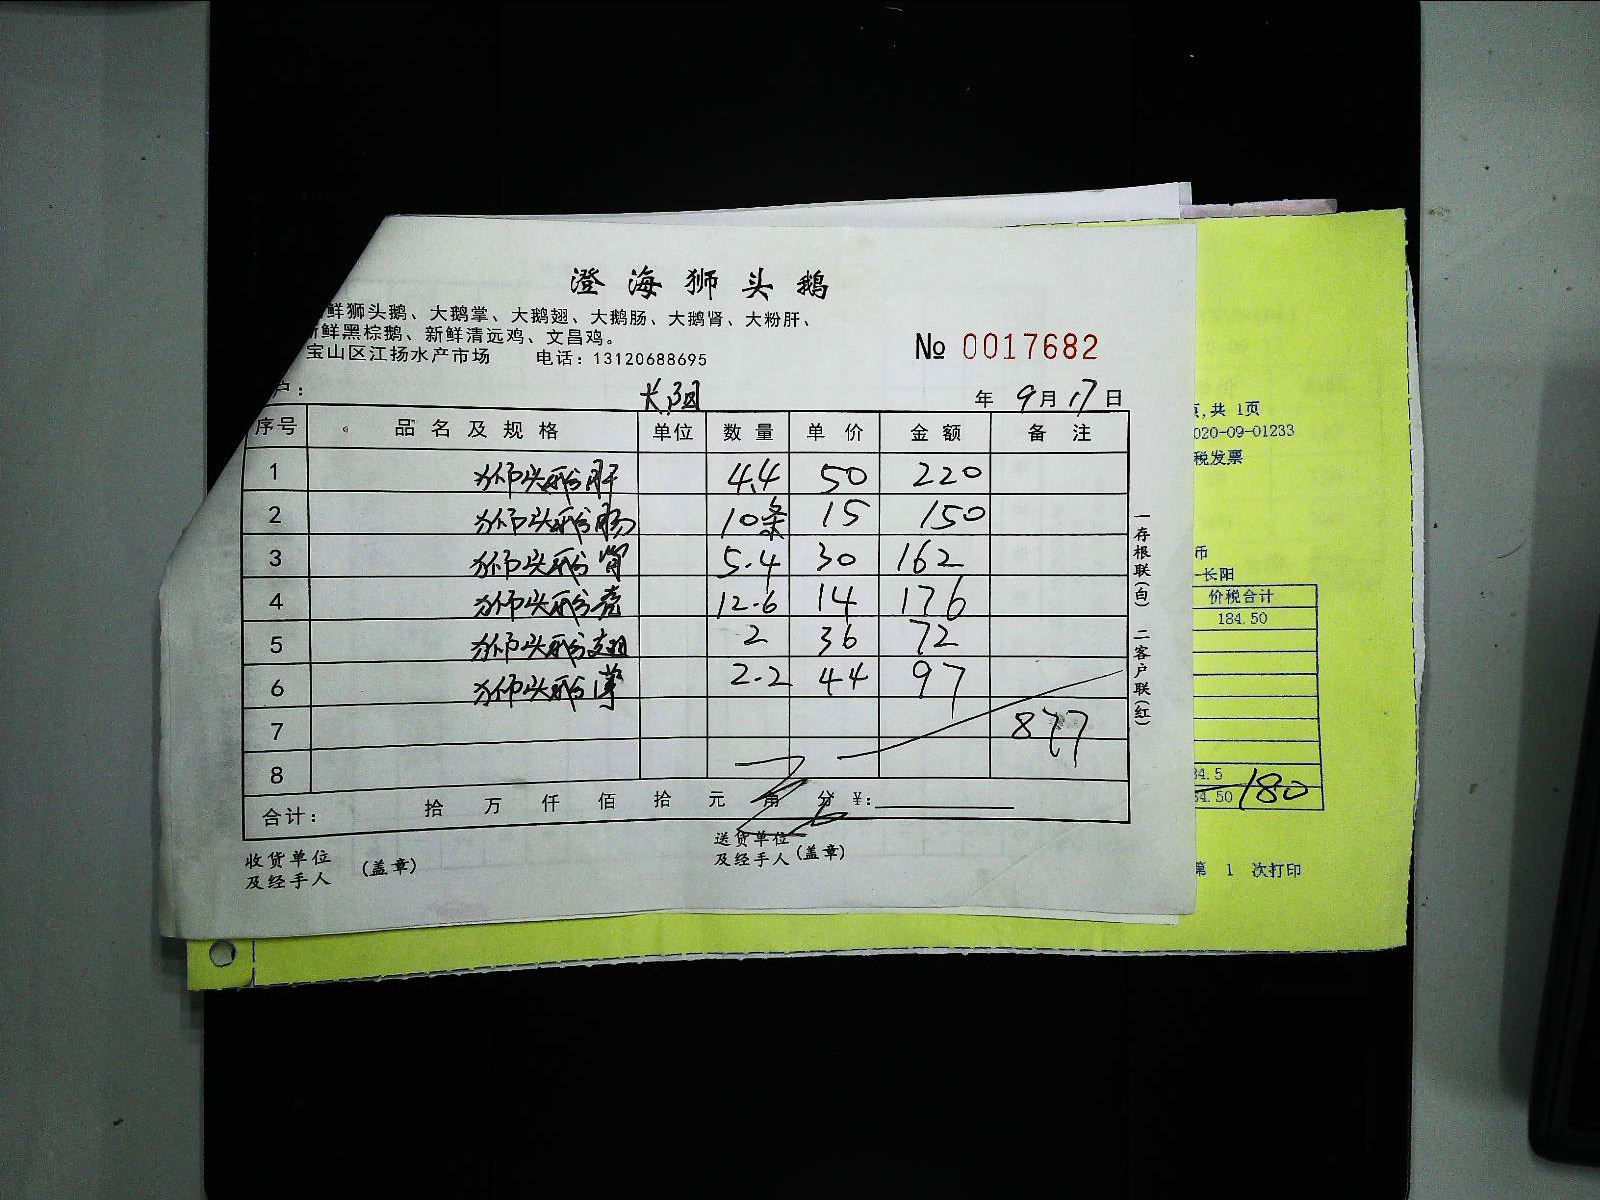 澄海狮头鹅
鲜狮头鹅、大鹅掌、大鹅翅、大鹅肠、大鹅肾、大粉肝、
鲜黑棕鹅、新鲜清远鸡、文昌鸡。
宝山区江扬水产市场 电话：13120688695
№ 0017682
户： 长阳 年 9月17日
序号 品名及规格 单位 数量 单价 金额 备注
1 狮头鹅肝 4.4 50 220
2 狮头鹅肠 10条 15 150
3 狮头鹅肾 5.4 30 162
4 狮头鹅壳 12.6 14 176
5 狮头鹅翅 2 36 72
6 狮头鹅掌 2.2 44 97
7 877
8
合计： 拾 万 仟 佰 拾 元 角 分 ¥：
收货单位
及经手人 (盖章)
送货单位
及经手人 (盖章)
一存根联(白) 二客户联(红)
页,共 1页
020-09-01233
税发票
币
-长阳
价税合计
184.50
84.5
84.50 180
第 1 次打印